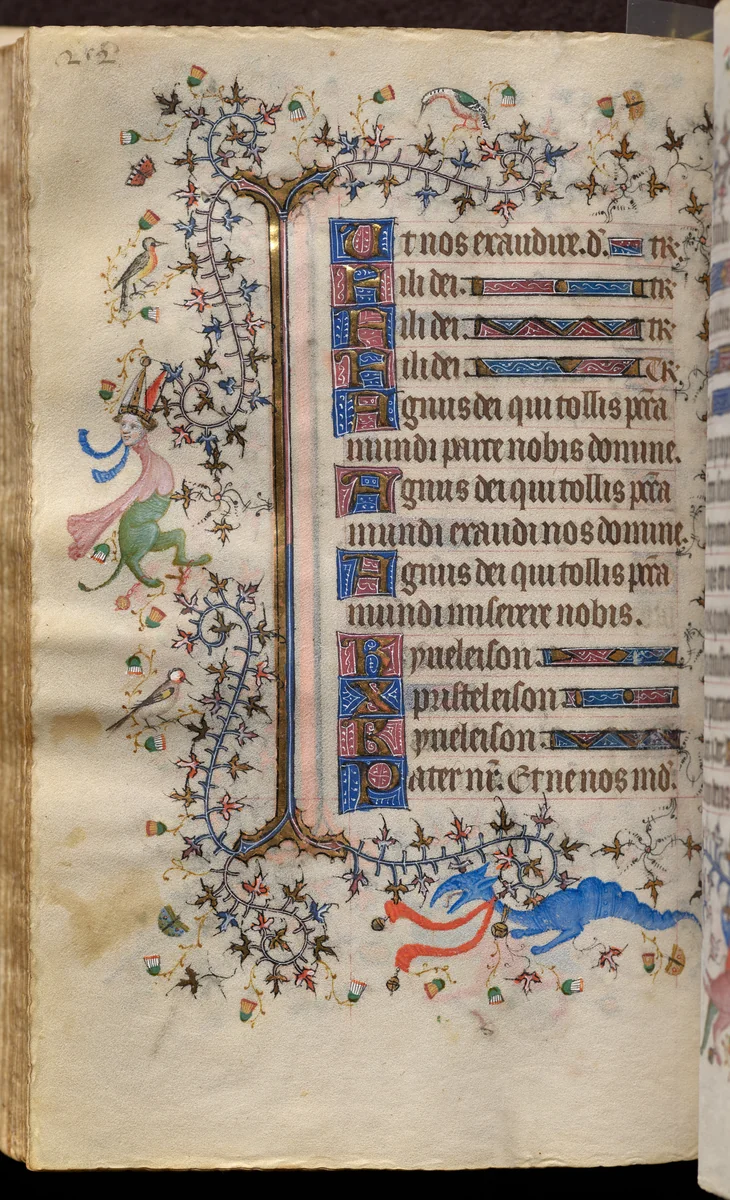 Ut nos exaudire. d̄. tR.
Fili dei. tR
Fili dei. tR
Fili dei. TR.
Agnus dei qui tollis pcc̄a
mundi parce nobis domine.
Agnus dei qui tollis pcc̄a
mundi exaudi nos domine.
Agnus dei qui tollis pcc̄a
mundi miserere nobis.
Kyrieleison
Xpristeleison
Kyrieleison
Pater nr̄. Et ne nos īd̄.